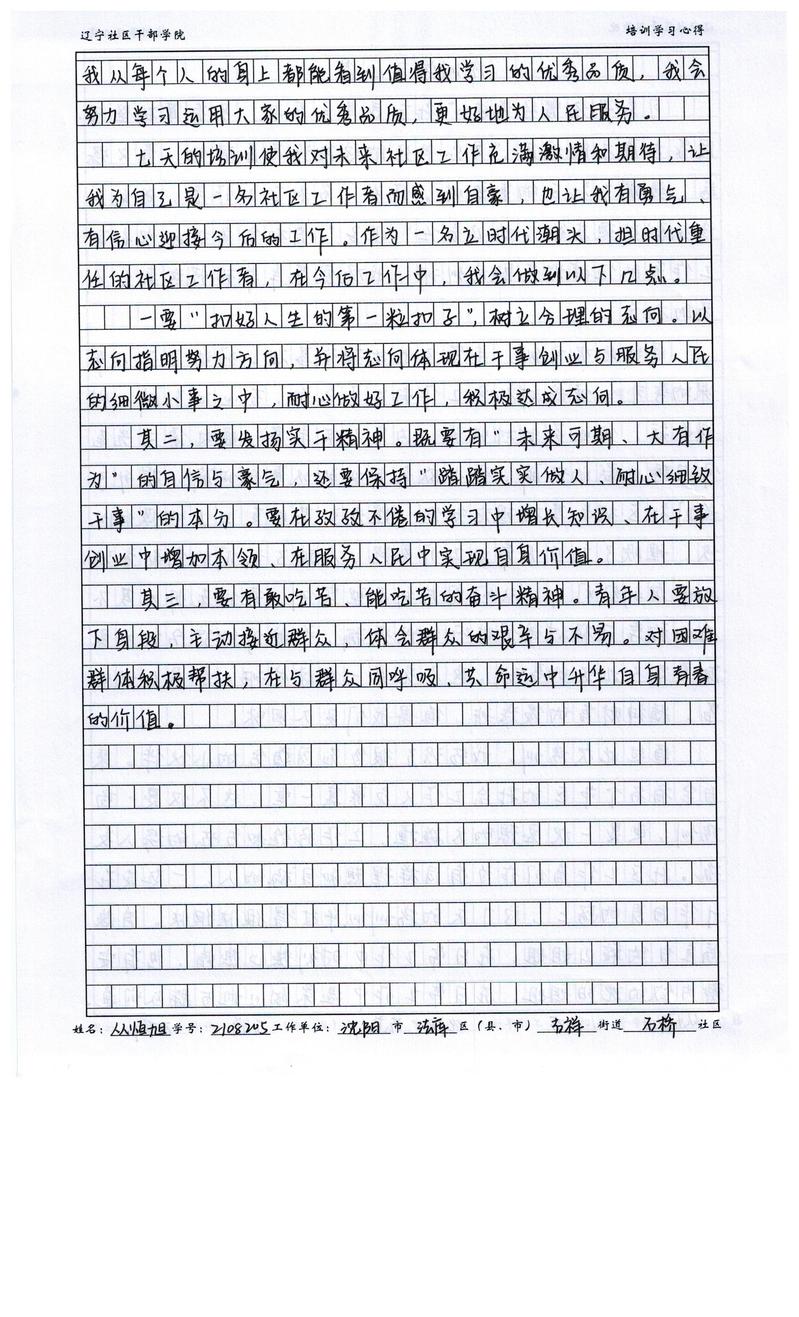 辽宁社区干部学院 培训学习心得
我从每个人的身上都能看到值得我学习的优秀品质，我会
努力学习运用大家的优秀品质，更好地为人民服务。
七天的培训使我对未来社区工作充满激情和期待，让
我为自己是一名社区工作者而感到自豪，也让我有勇气、
有信心迎接今后的工作。作为一名立时代潮头，担时代重
任的社区工作者，在今后工作中，我会做到以下几点。
一要“扣好人生的第一粒扣子”，树立合理的志向。以
志向指明努力方向，并将志向体现在干事创业与服务人民
的细微小事之中，耐心做好工作，积极达成志向。
其二，要发扬实干精神。既要有“未来可期、大有作
为”的自信与豪气，还要保持“踏踏实实做人、耐心细致
干事”的本分。要在孜孜不倦的学习中增长知识、在干事
创业中增加本领、在服务人民中实现自身价值。
其三，要有敢吃苦、能吃苦的奋斗精神。青年人要放
下身段，主动接近群众，体会群众的艰辛与不易。对困难
群体积极帮扶，在与群众同呼吸、共命运中升华自身青春
的价值。
姓名：从恒旭 学号：2108205 工作单位：沈阳 市 法库 区（县、市） 吉祥 街道 石桥 社区